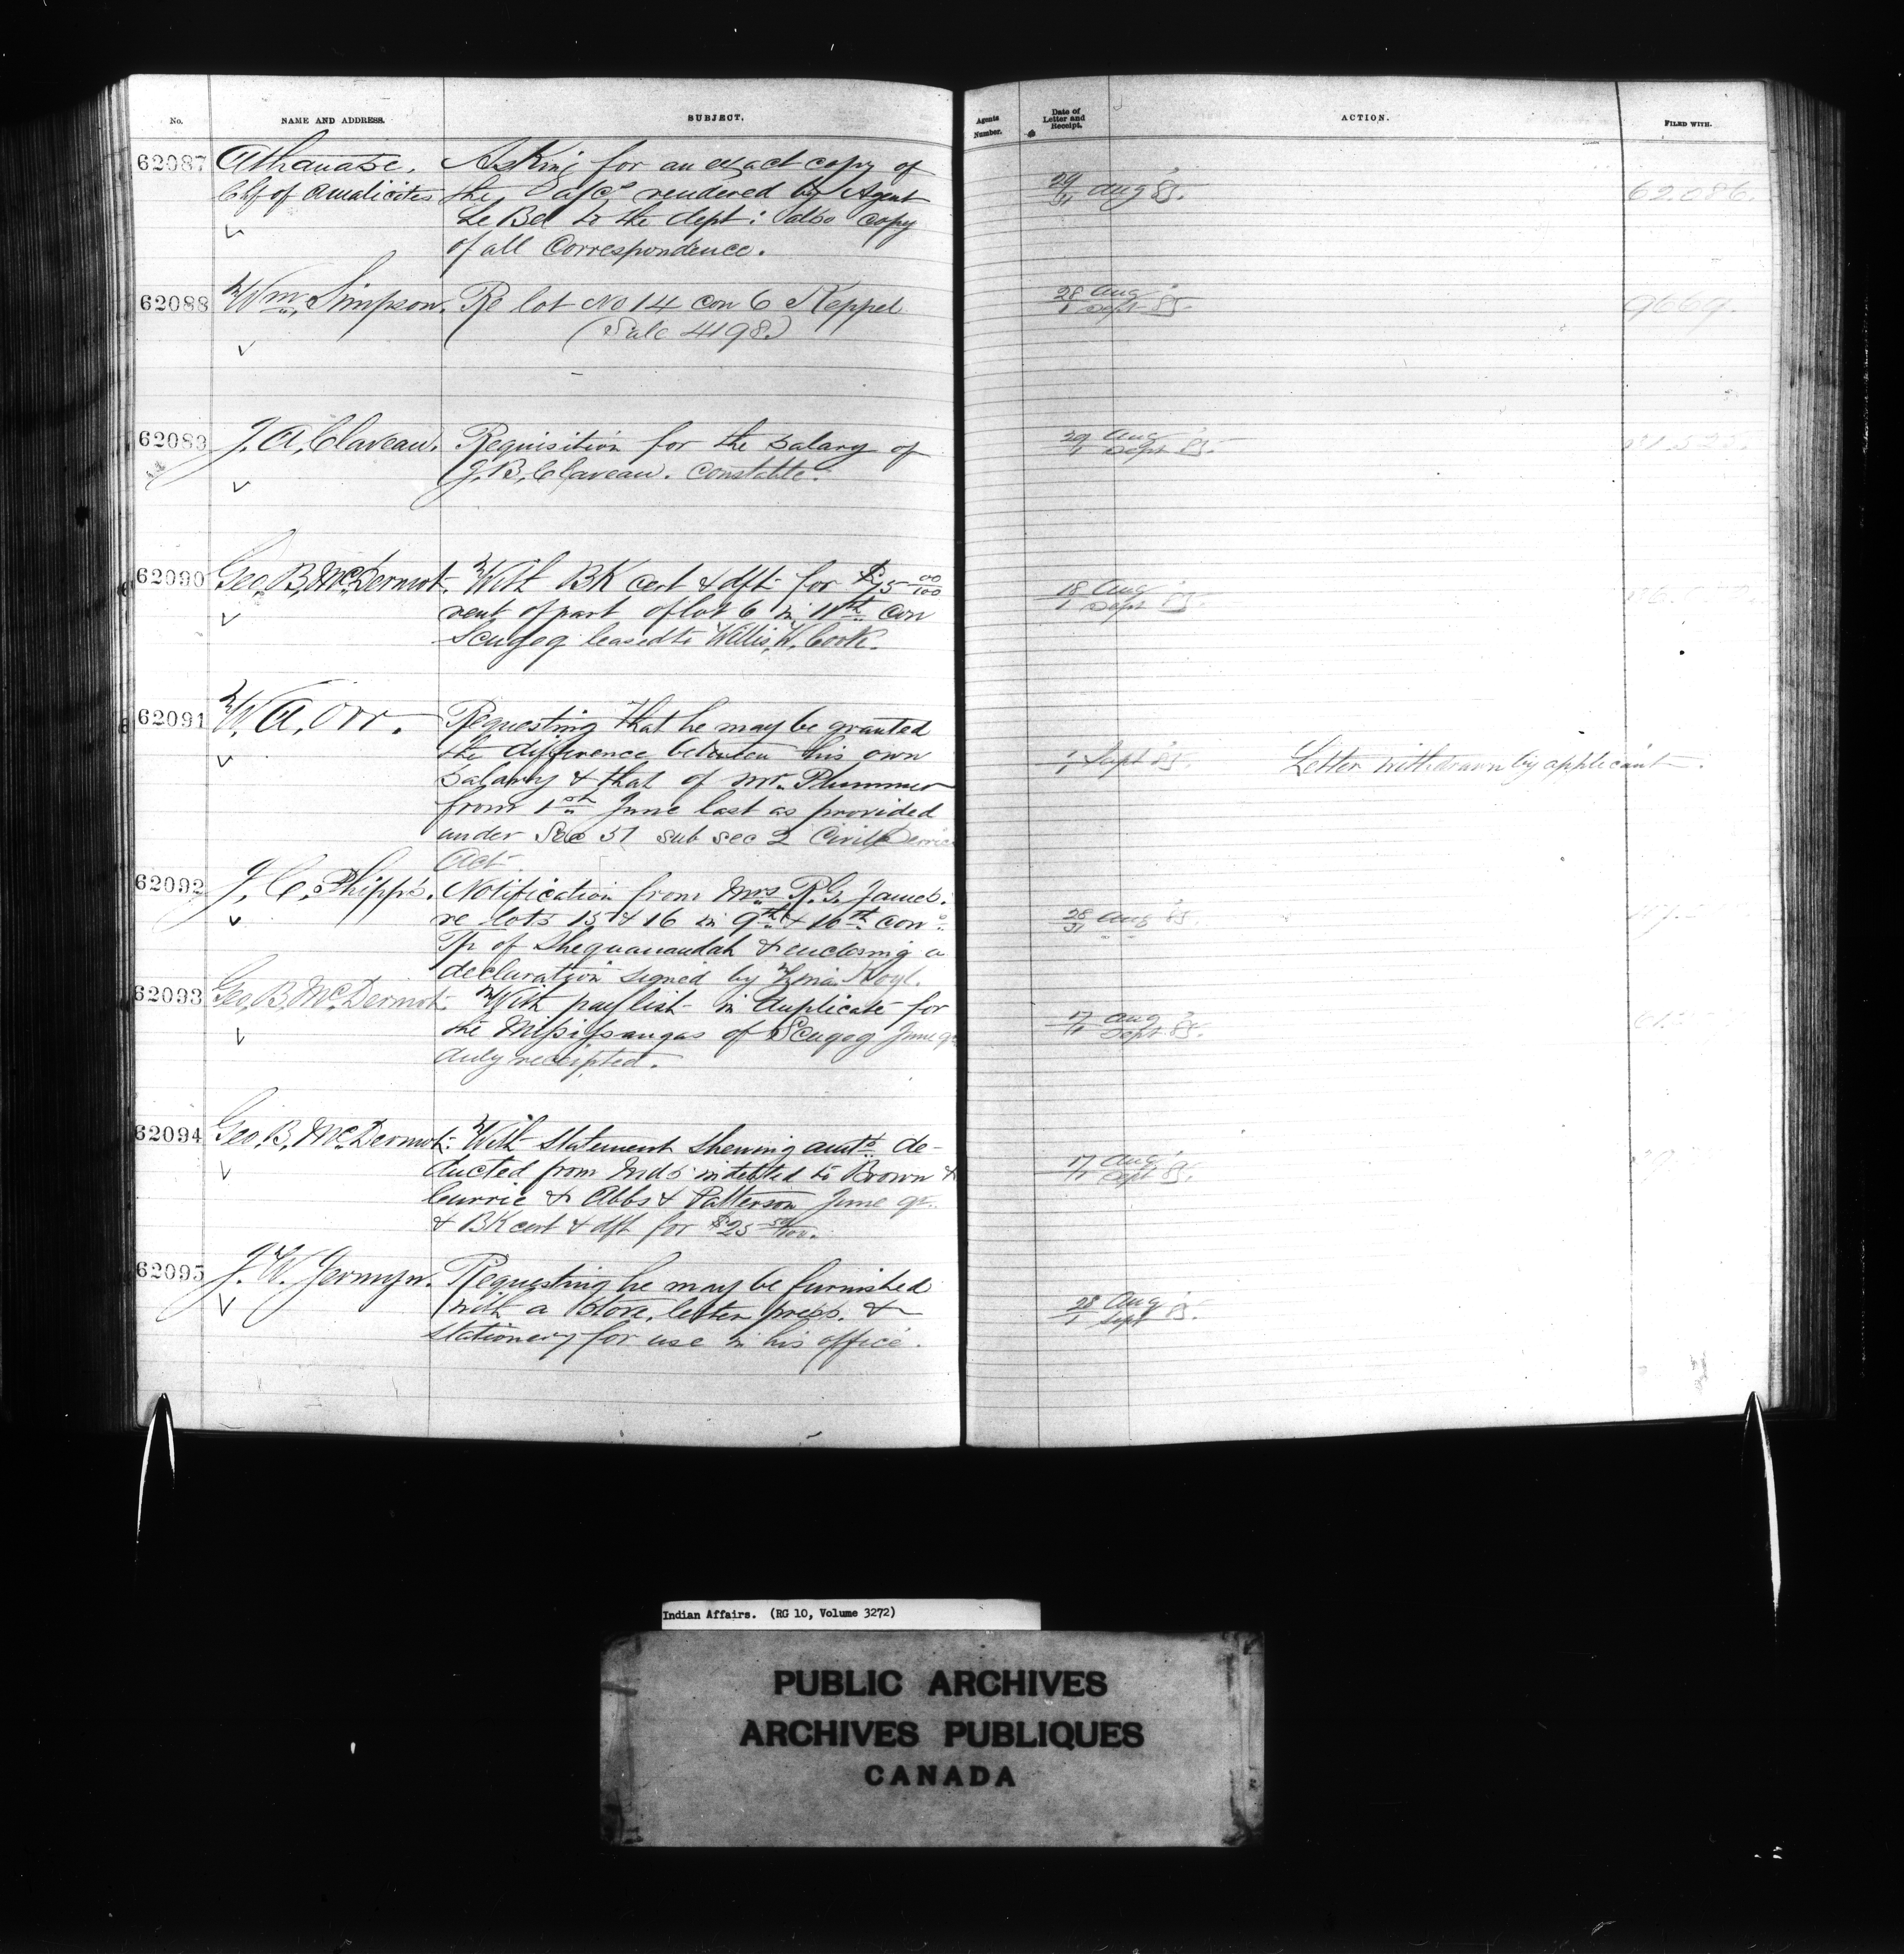 No. NAME AND ADDRESS. SUBJECT. Agents Number. Date of Letter and Receipt. ACTION. FILED WITH.
62087 Athanase. Asking for an exact copy of
Chf of Amalicites the a/cs rendered by Agent 29/31 Aug 85. 62.086.
Le Bel to the dept: also copy
of all Correspondence.
62088 Wm Simpson. Re lot No 14 con 6 Keppel 28 Aug / 1 Sept 85. 9669.
(Sale 4198.)
62089 J. A. Claveau. Requisition for the salary of 29 Aug / 1 Sept 85.
J. B. Claveau. Constable.
62090 Geo. B. McDermot. With BK cert & dft for $75 00/100 18 Aug / 1 Sept 85.
rent of part of lot 6 in 11th con
Scugog leased to Willis W. Cook.
62091 W. A. Orr. Requesting that he may be granted
the difference between his own 1/1 Sept 85. Letter withdrawn by applicant.
salary & that of Mr. Plummer
from 1st June last as provided
under Sec 51 sub sec 2 Civil Service
Act.
62092 J. C. Phipps. Notification from Mrs R. G. James.
re lots 15 & 16 in 9th & 10th con 28/31 Aug 85.
Tp of Sheguanandah & enclosing a
declaration signed by Hoyl.
62093 Geo. B. McDermot. With paylist in duplicate for 17 Aug / 1 Sept 85.
the Mississaugas of Scugog June qr
duly receipted.
62094 Geo. B. McDermot. With statement shewing amts de-
ducted from Inds indebted to Brown & 17 Aug / 1 Sept 85.
Currie & Abbs & Patterson June qr.
& BK cert & dft for $25 50/100.
62095 J. W. Jermyn. Requesting he may be furnished
with a stove, letter press, & 28 Aug / 1 Sept 85.
stationery for use in his office.
Indian Affairs. (RG 10, Volume 3272)
PUBLIC ARCHIVES
ARCHIVES PUBLIQUES
CANADA